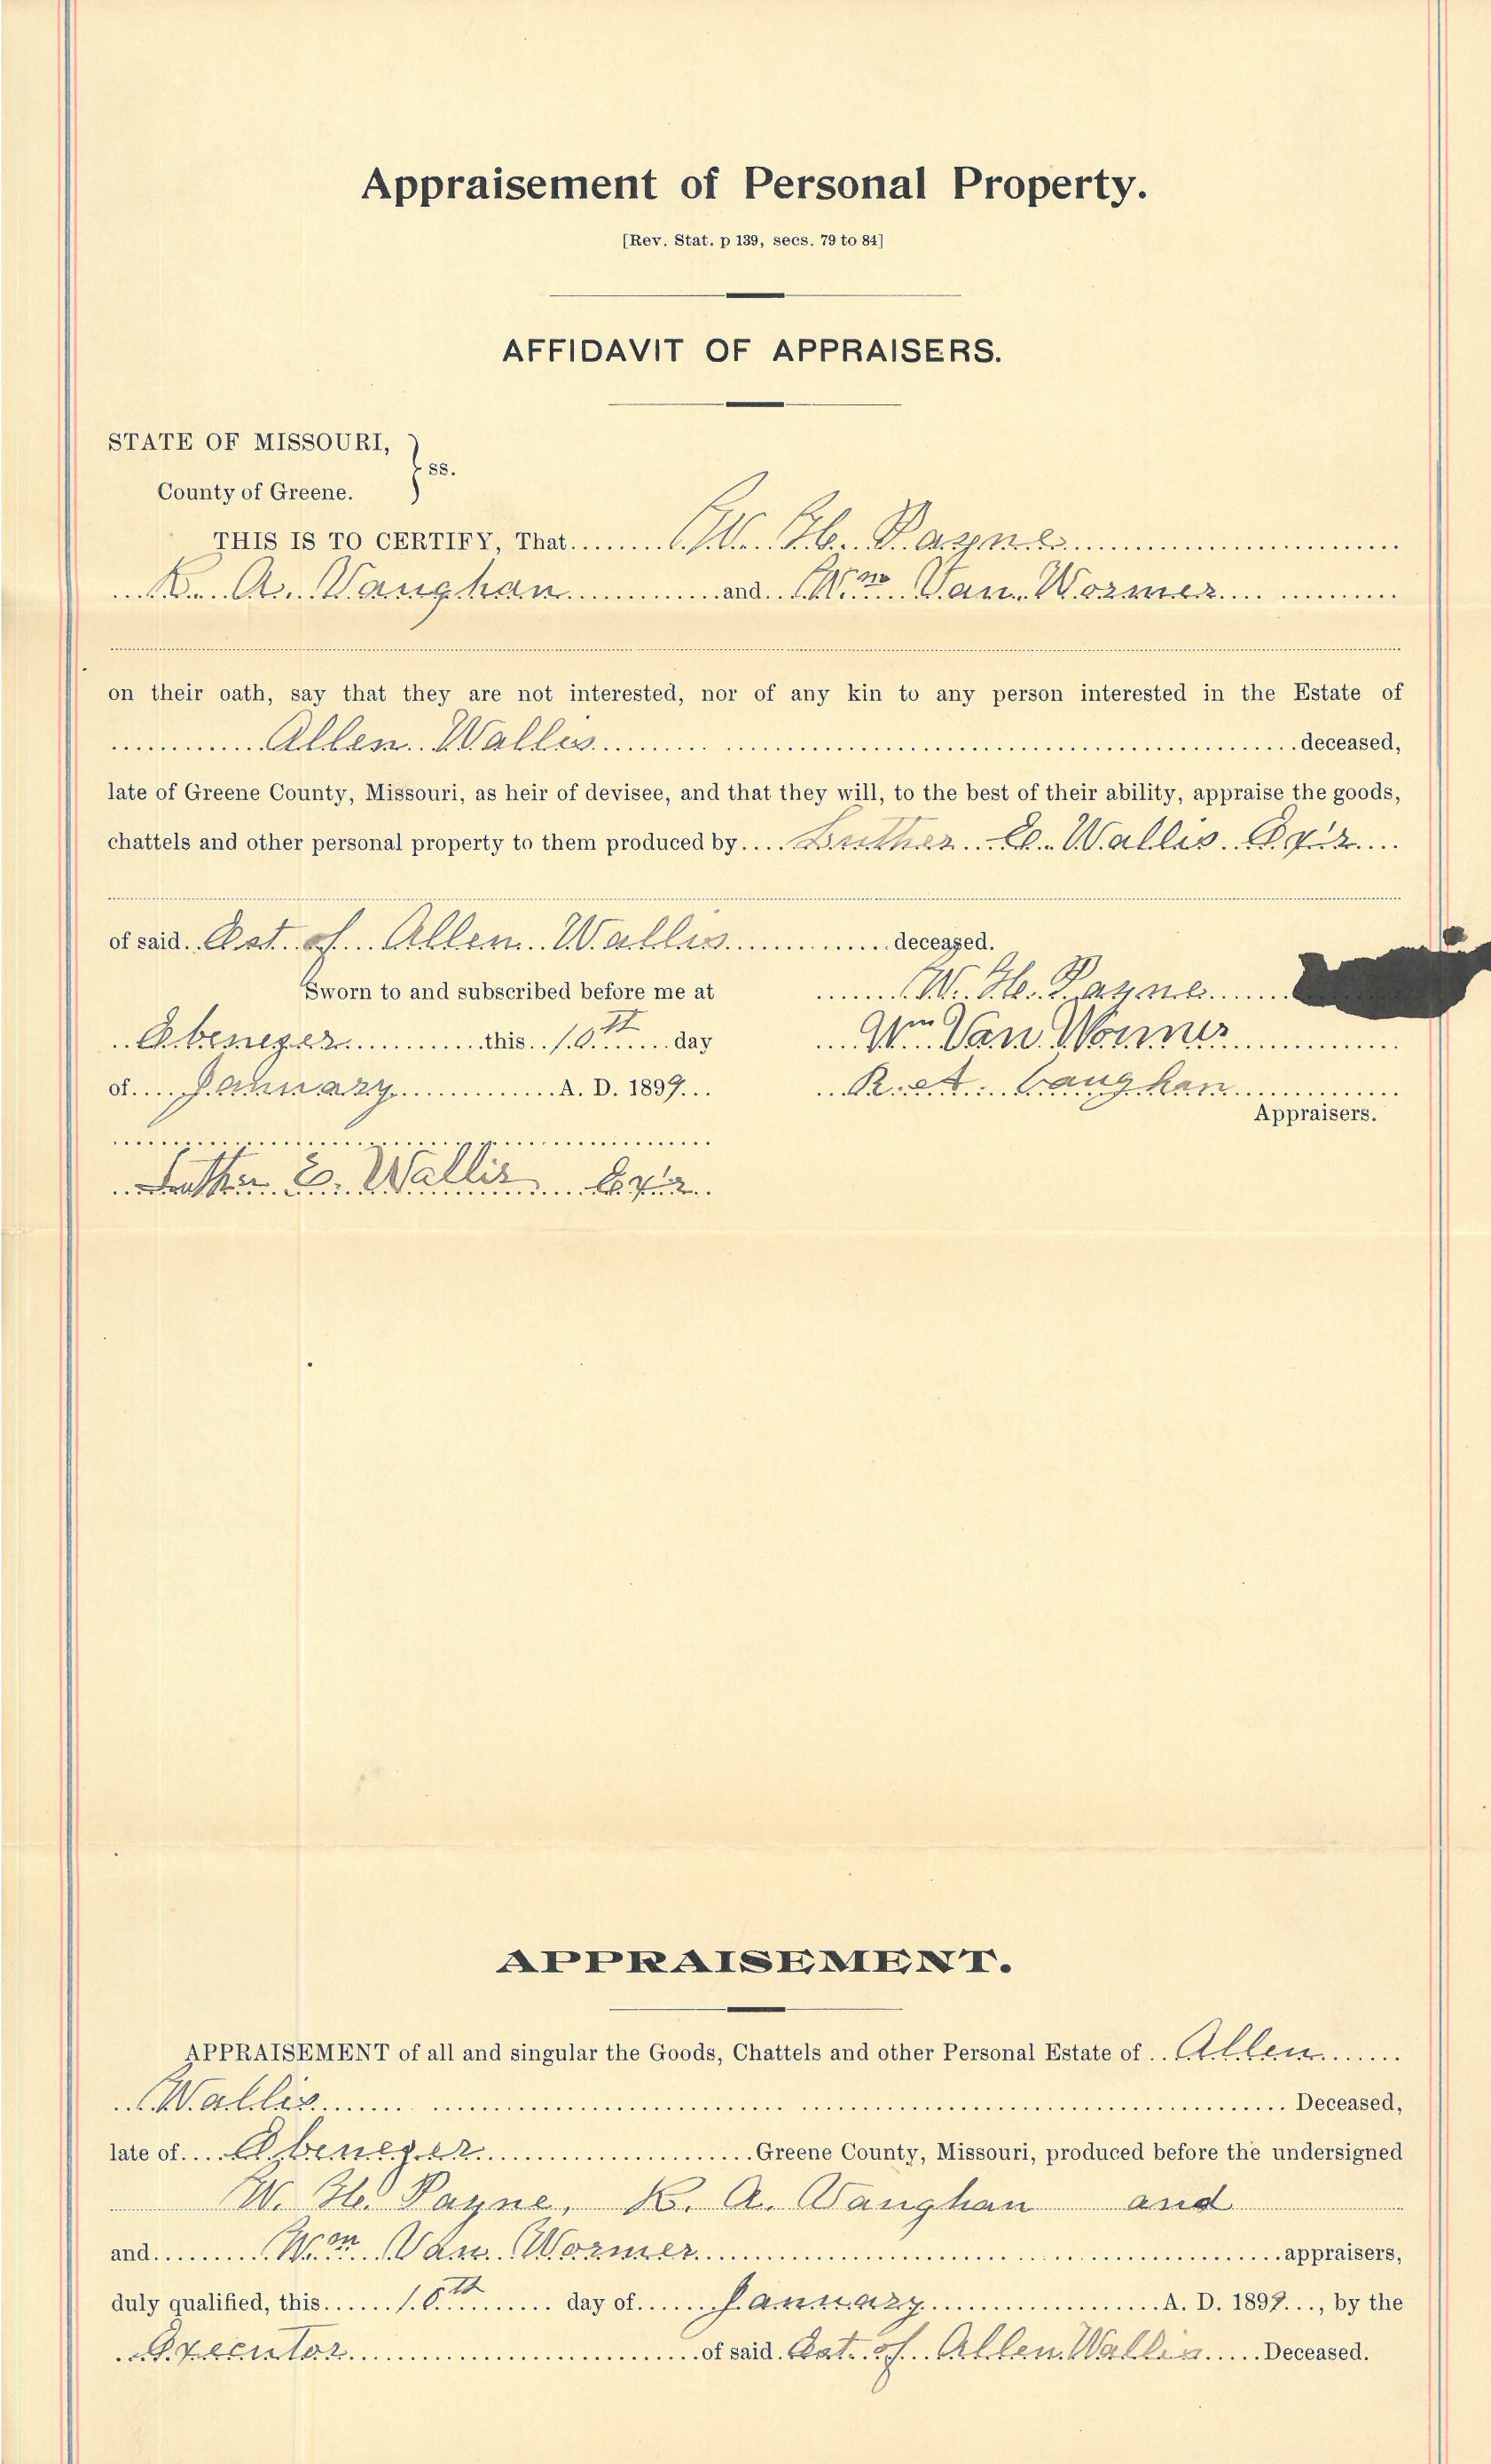 Appraisement of Personal Property.
[Rev. Stat. p 139, secs. 79 to 84]
AFFIDAVIT OF APPRAISERS.
STATE OF MISSOURI,
ss.
County of Greene.
THIS IS TO CERTIFY, That W. H. Payne
R. A. Vaughan and Wm Van Wormer
on their oath, say that they are not interested, nor of any kin to any person interested in the Estate of
Allen Wallis deceased,
late of Greene County, Missouri, as heir of devisee, and that they will, to the best of their ability, appraise the goods,
chattels and other personal property to them produced by Luther E. Wallis Ex'r
of said Est. of Allen Wallis deceased.
Sworn to and subscribed before me at
W. H. Payne
Ebenezer this 10th day
Wm Van Wormer
of January A. D. 1899
R. A. Vaughan
Appraisers.
Luther E. Wallis Ex'r
APPRAISEMENT.
APPRAISEMENT of all and singular the Goods, Chattels and other Personal Estate of Allen
Wallis Deceased,
late of Ebenezer Greene County, Missouri, produced before the undersigned
W. H. Payne, R. A. Vaughan and
and Wm Van Wormer appraisers,
duly qualified, this 10th day of January A. D. 1899, by the
Executor of said Est. of Allen Wallis Deceased.